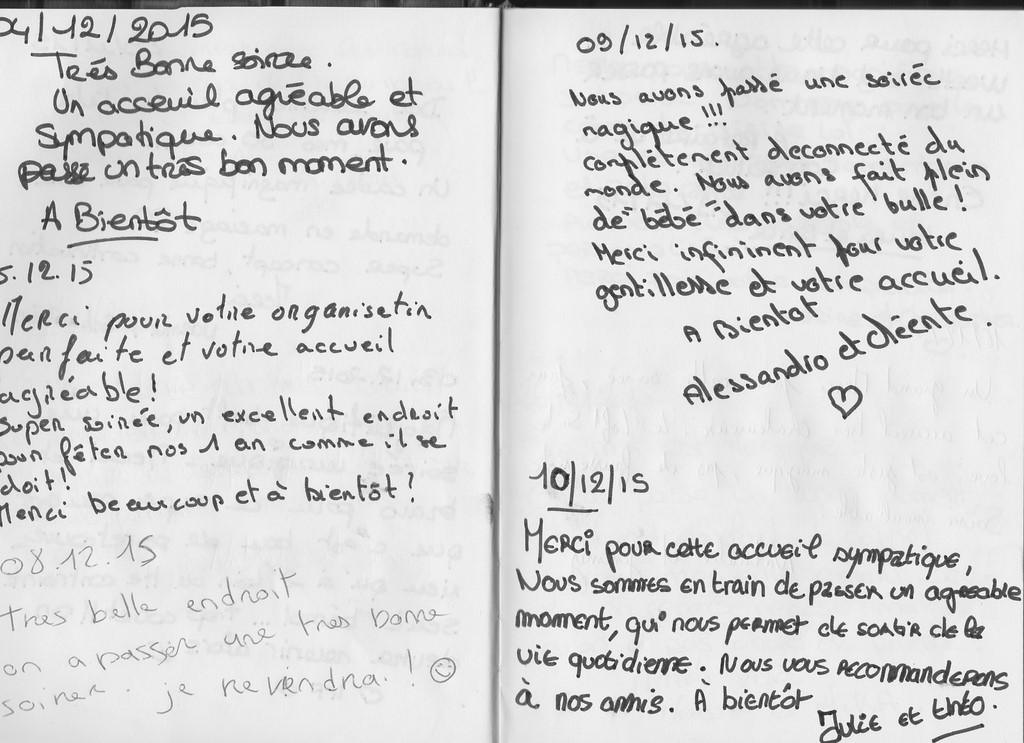 04/12/2015
Très Bonne soirée.
Un acceuil agréable et
sympatique. Nous avons
passe un très bon moment.
A Bientôt
5.12.15
Merci pour votre organisatin
parfaite et votre accueil
agréable!
Super soirée, un excellent endroit
pour fêter nos 1 an comme il se
doit!
Merci beaucoup et à bientôt!
08 12 15
très belle endroit
on a passer une très bonne
soirer. je revendrai! ☺
09/12/15.
Nous avons passé une soirée
magique!!!
complètement déconnecté du
monde. Nous avons fait plein
de "bébé" dans votre bulle!
Merci infiniment pour votre
gentillesse et votre accueil.
A Bientot
Alessandro et
♡
10/12/15
Merci pour cette accueil sympatique,
Nous sommes en train de passer un agreable
moment, qui nous permet de sortir de la
vie quotidienne. Nous vous recommanderons
à nos amis. À bientôt
Julie et théo.